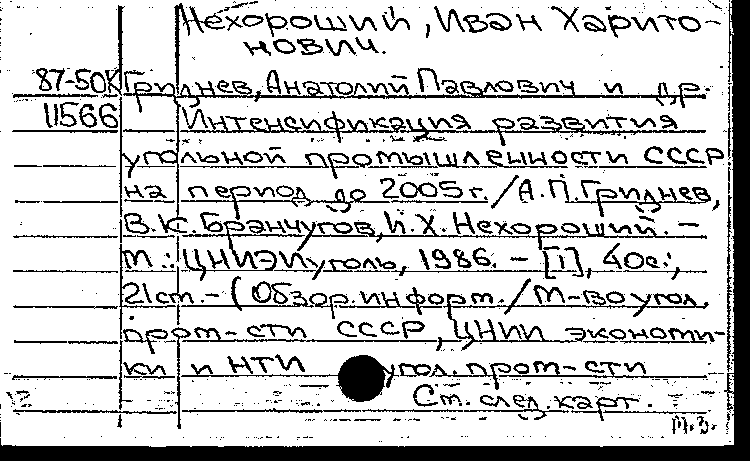 Нехороший, Иван Харито-
нович.
87-50К Гриднев, Анатолий Павлович и др.
11566 Интенсификация развития
угольной промышленности СССР
на период до 2005 г. / А.П. Гриднев,
В.К. Бранчугов, И.Х. Нехороший. –
М.: ЦНИЭИуголь, 1986. – [1], 40 с.;
21 см. – (Обзор. информ. / М-во угол.
пром-сти СССР, ЦНИИ экономи-
ки и НТИ угол. пром-сти
См. след. карт.
М.З.